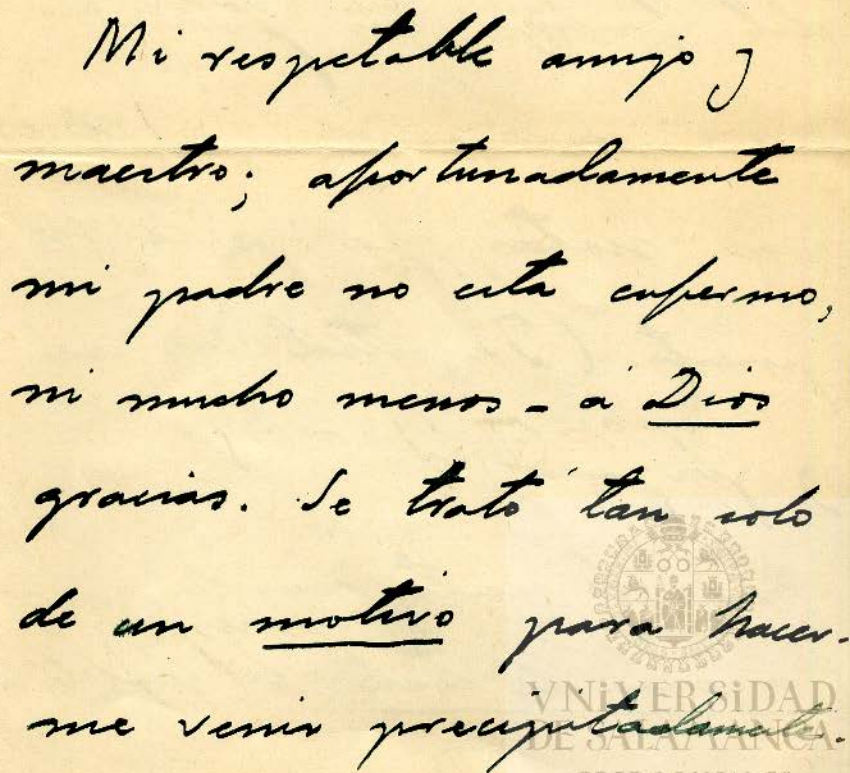 Mi respetable amigo y
maestro; afortunadamente
mi padre no esta enfermo,
ni mucho menos - á Dios
gracias. Se trató tan solo
de un motivo para hacer-
me venir precipitadamente.
VNiVERSiDAD
DE SALAMANCA